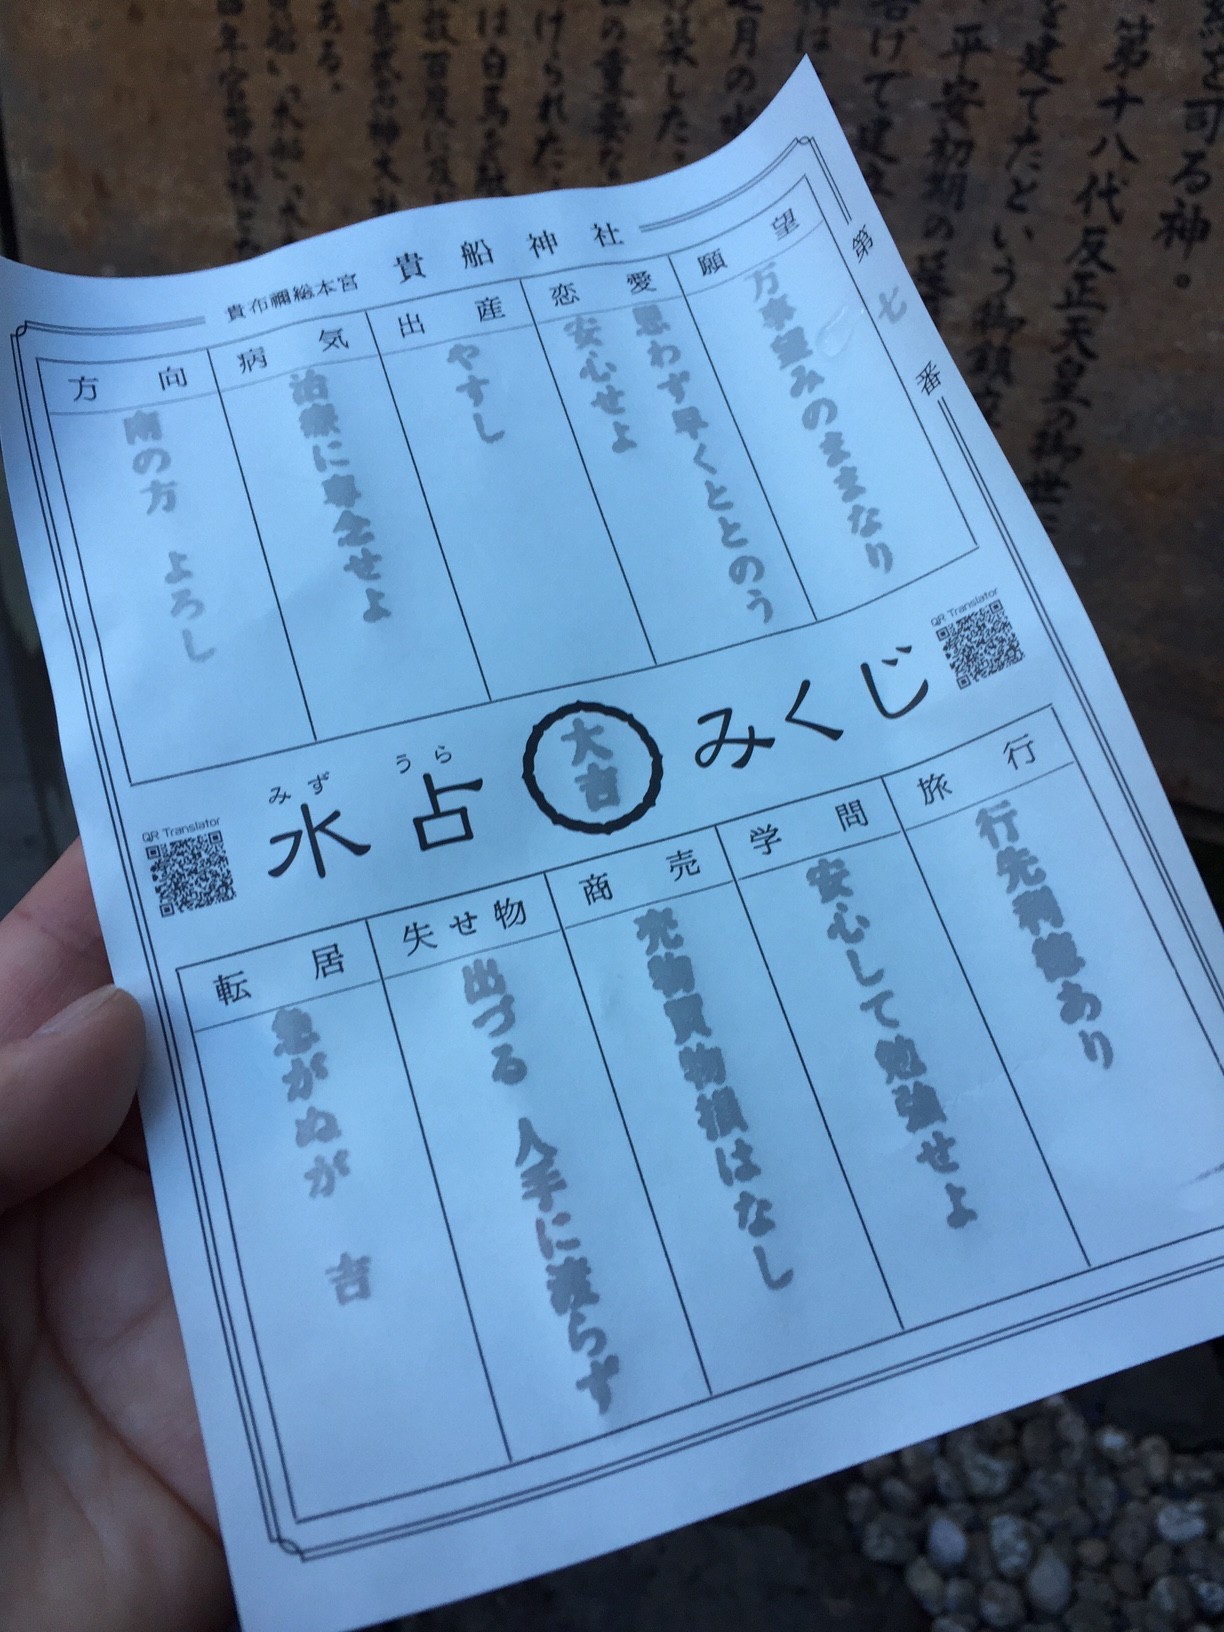 を司る神。
第十八代反正天皇の御世
を建てたという御鎮座
平安初期の延
貴布禰総本宮 貴船神社
第七番
願望
万事望みのままなり
恋愛
思わず早くととのう
安心せよ
出産
やすし
病気
治療に専念せよ
方向
南の方 よろし
QR Translator
みずうら
水占
大吉
みくじ
QR Translator
旅行
行先利益あり
学問
安心して勉強せよ
商売
売物買物損はなし
失せ物
出づる 人手に渡らず
転居
急がぬが 吉